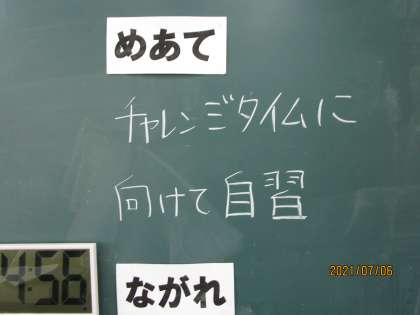 めあて
チャレンジタイムに
向けて自習
4:56
ながれ
2021/07/06